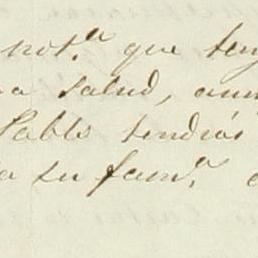 not.ª que teng
a salud, aun
Pablo tendrás
a su fam.ª